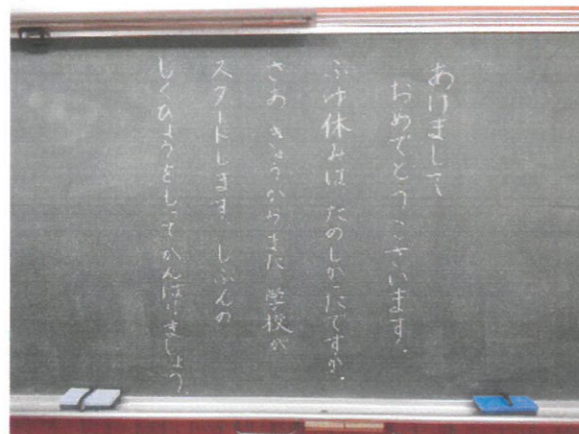 あけまして
おめでとうございます。
ふゆ休みは たのしかったですか。
さあ きょうからまた 学校が
スタートします。 じぶんの
もくひょうをもって がんばりましょう。